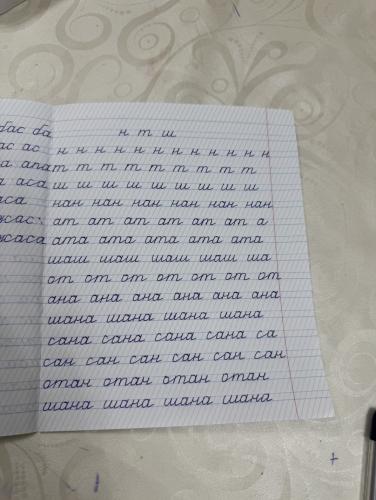 бас ба
ас ас
а апа
а аса
аса
жас
жаса
н т ш
н н н н н н н н н н н н
т т т т т т т т т
ш ш ш ш ш ш ш ш ш
нан нан нан нан нан нан
ат ат ат ат ат а
ата ата ата ата ата
шаш шаш шаш шаш ша
от от от от от от от
ана ана ана ана ана ана
шана шана шана шана
сана сана сана сана са
сан сан сан сан сан сан
отан отан отан отан
шана шана шана шана